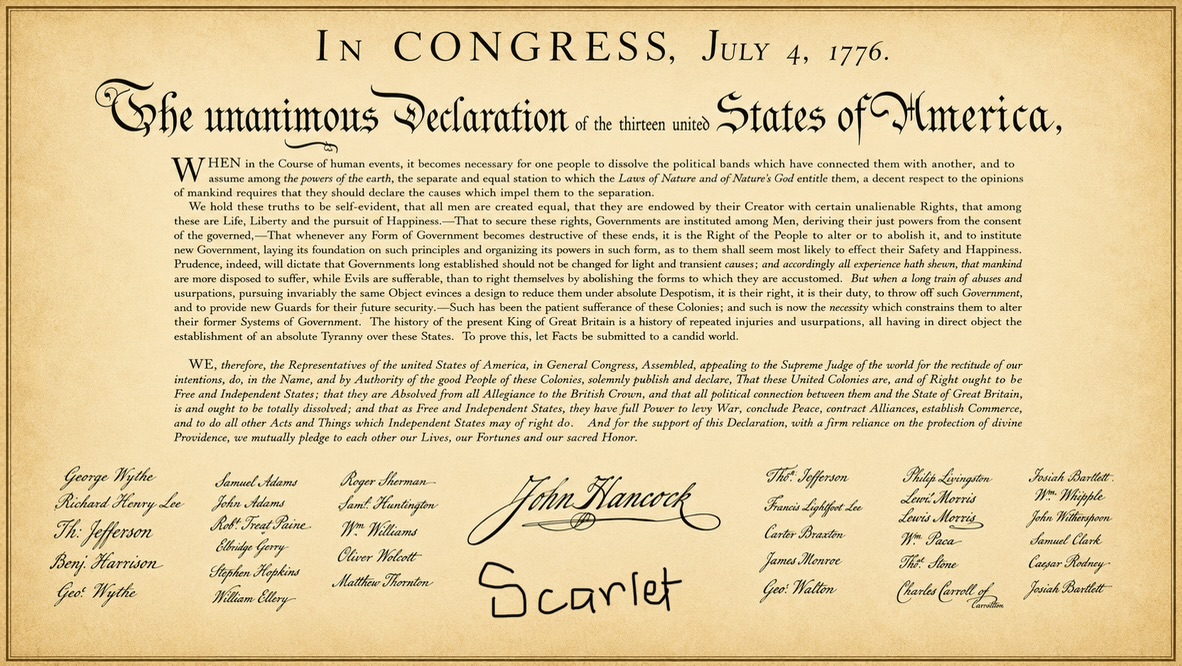 IN CONGRESS, JULY 4, 1776.
The unanimous Declaration of the thirteen united States of America,
WHEN in the Course of human events, it becomes necessary for one people to dissolve the political bands which have connected them with another, and to
assume among the powers of the earth, the separate and equal station to which the Laws of Nature and of Nature's God entitle them, a decent respect to the opinions
of mankind requires that they should declare the causes which impel them to the separation.
We hold these truths to be self-evident, that all men are created equal, that they are endowed by their Creator with certain unalienable Rights, that among
these are Life, Liberty and the pursuit of Happiness.—That to secure these rights, Governments are instituted among Men, deriving their just powers from the consent
of the governed,—That whenever any Form of Government becomes destructive of these ends, it is the Right of the People to alter or to abolish it, and to institute
new Government, laying its foundation on such principles and organizing its powers in such form, as to them shall seem most likely to effect their Safety and Happiness.
Prudence, indeed, will dictate that Governments long established should not be changed for light and transient causes; and accordingly all experience hath shewn, that mankind
are more disposed to suffer, while Evils are sufferable, than to right themselves by abolishing the forms to which they are accustomed. But when a long train of abuses and
usurpations, pursuing invariably the same Object evinces a design to reduce them under absolute Despotism, it is their right, it is their duty, to throw off such Government,
and to provide new Guards for their future security.—Such has been the patient sufferance of these Colonies; and such is now the necessity which constrains them to alter
their former Systems of Government. The history of the present King of Great Britain is a history of repeated injuries and usurpations, all having in direct object the
establishment of an absolute Tyranny over these States. To prove this, let Facts be submitted to a candid world.
WE, therefore, the Representatives of the united States of America, in General Congress, Assembled, appealing to the Supreme Judge of the world for the rectitude of our
intentions, do, in the Name, and by Authority of the good People of these Colonies, solemnly publish and declare, That these United Colonies are, and of Right ought to be
Free and Independent States; that they are Absolved from all Allegiance to the British Crown, and that all political connection between them and the State of Great Britain,
is and ought to be totally dissolved; and that as Free and Independent States, they have full Power to levy War, conclude Peace, contract Alliances, establish Commerce,
and to do all other Acts and Things which Independent States may of right do. And for the support of this Declaration, with a firm reliance on the protection of divine
Providence, we mutually pledge to each other our Lives, our Fortunes and our sacred Honor.
George Wythe
Richard Henry Lee
Th: Jefferson
Benj Harrison
Geo: Wythe
Samuel Adams
John Adams
Robt Treat Paine
Elbridge Gerry
Stephen Hopkins
William Ellery
Roger Sherman
Saml. Huntington
Wm Williams
Oliver Wolcott
Matthew Thornton
John Hancock
Scarlet
Thos. Jefferson
Francis Lightfoot Lee
Carter Braxton
James Monroe
Geo: Walton
Philip Livingston
Lewi. Morris
Lewis Morris
Wm. Paca
Thos. Stone
Charles Carroll of
Carrollton
Josiah Bartlett
Wm. Whipple
John Witherspoon
Samuel Clark
Caesar Rodney
Josiah Bartlett